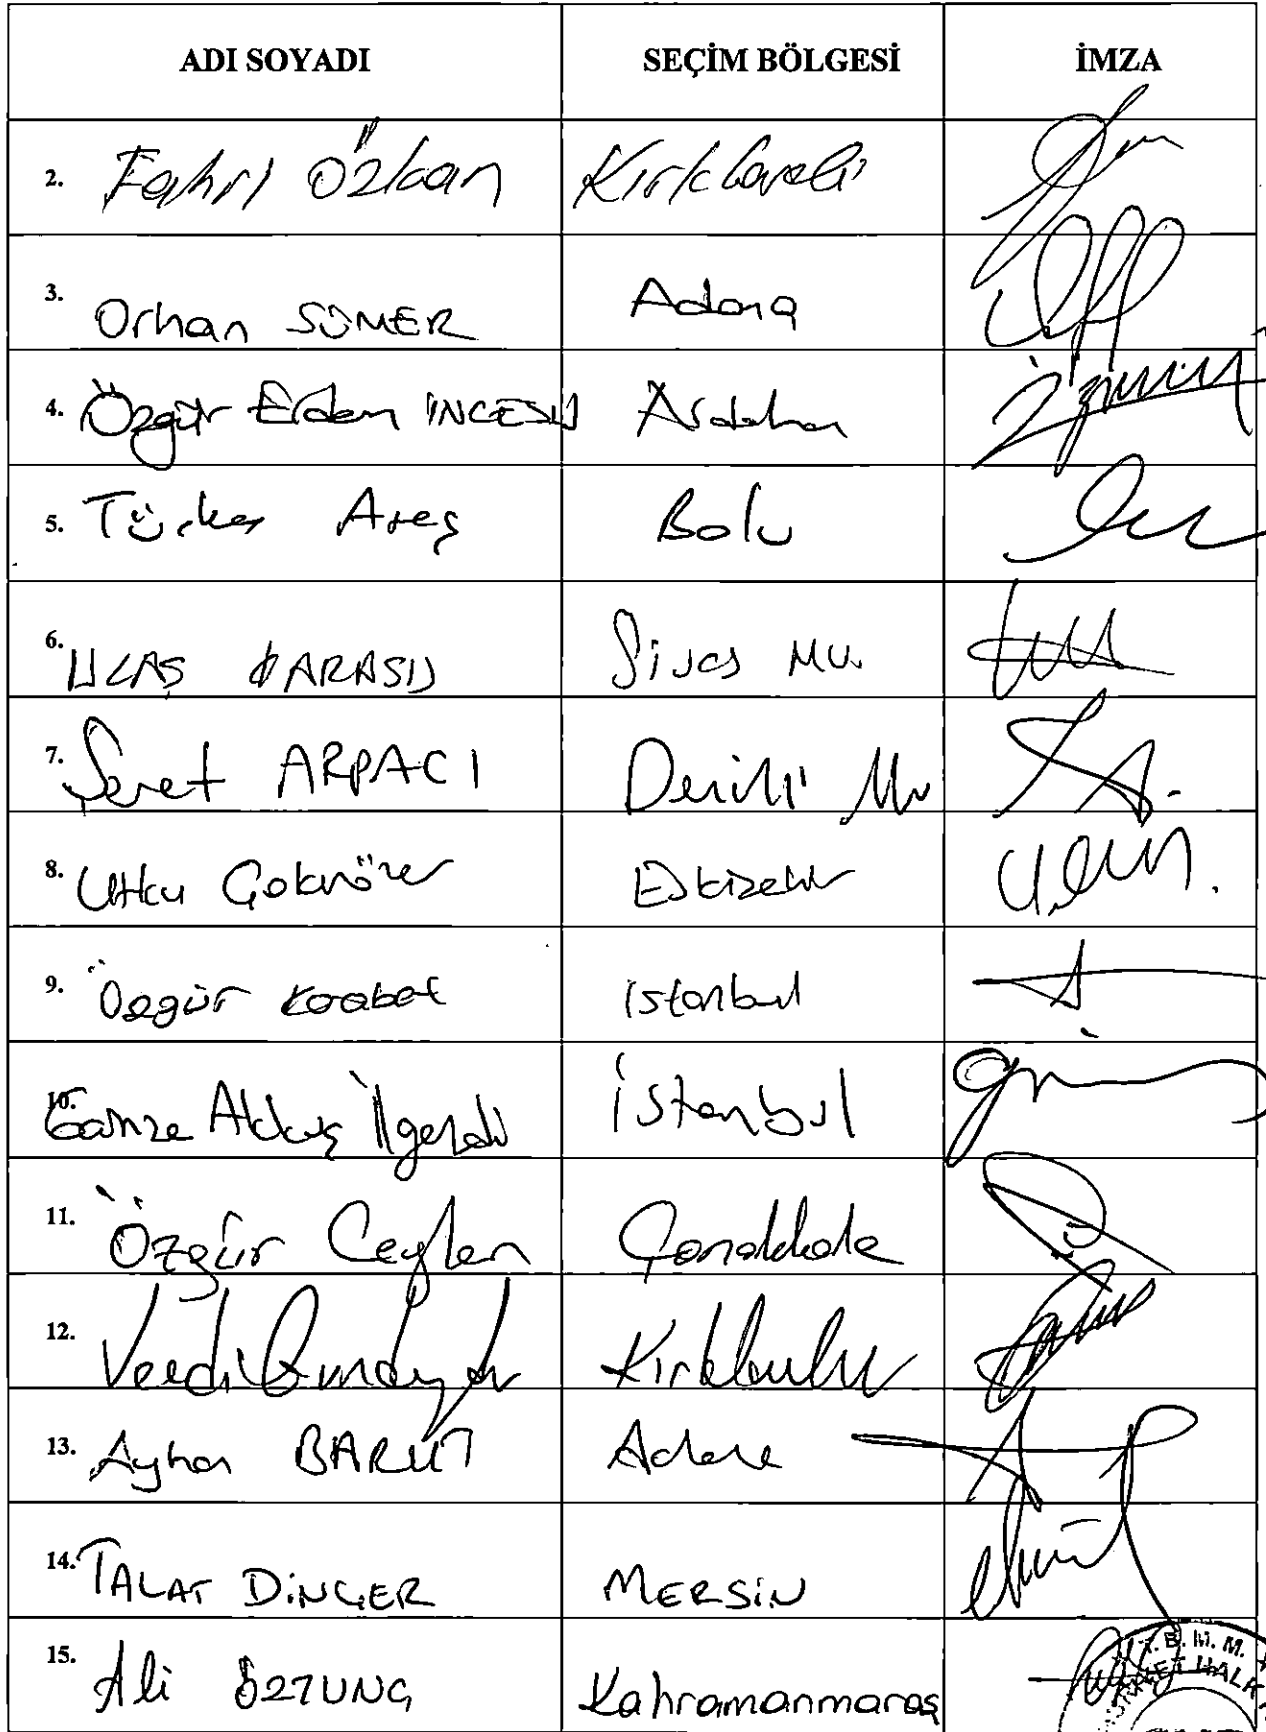 ADI SOYADI SEÇİM BÖLGESİ İMZA
2. Fahri Özkan Kırklareli
3. Orhan SÜMER Adana
4. Özgür Erdem İNCESU Ardahan
5. Türker Ateş Bolu
6. ULAŞ KARASU Sivas Mv.
7. Şeref ARPACI Denizli Mv
8. Utku Çakırözer Eskişehir
9. Özgür Karabat istanbul
10. Gamze Akkuş İlgezdi İstanbul
11. Özgür Ceylan Çanakkale
12. Vecdi Gündoğdu Kırklareli
13. Ayhan BARUT Adana
14. TALAT DİNÇER MERSİN
15. Ali ÖZTUNÇ Kahramanmaraş
T.B.M.M.